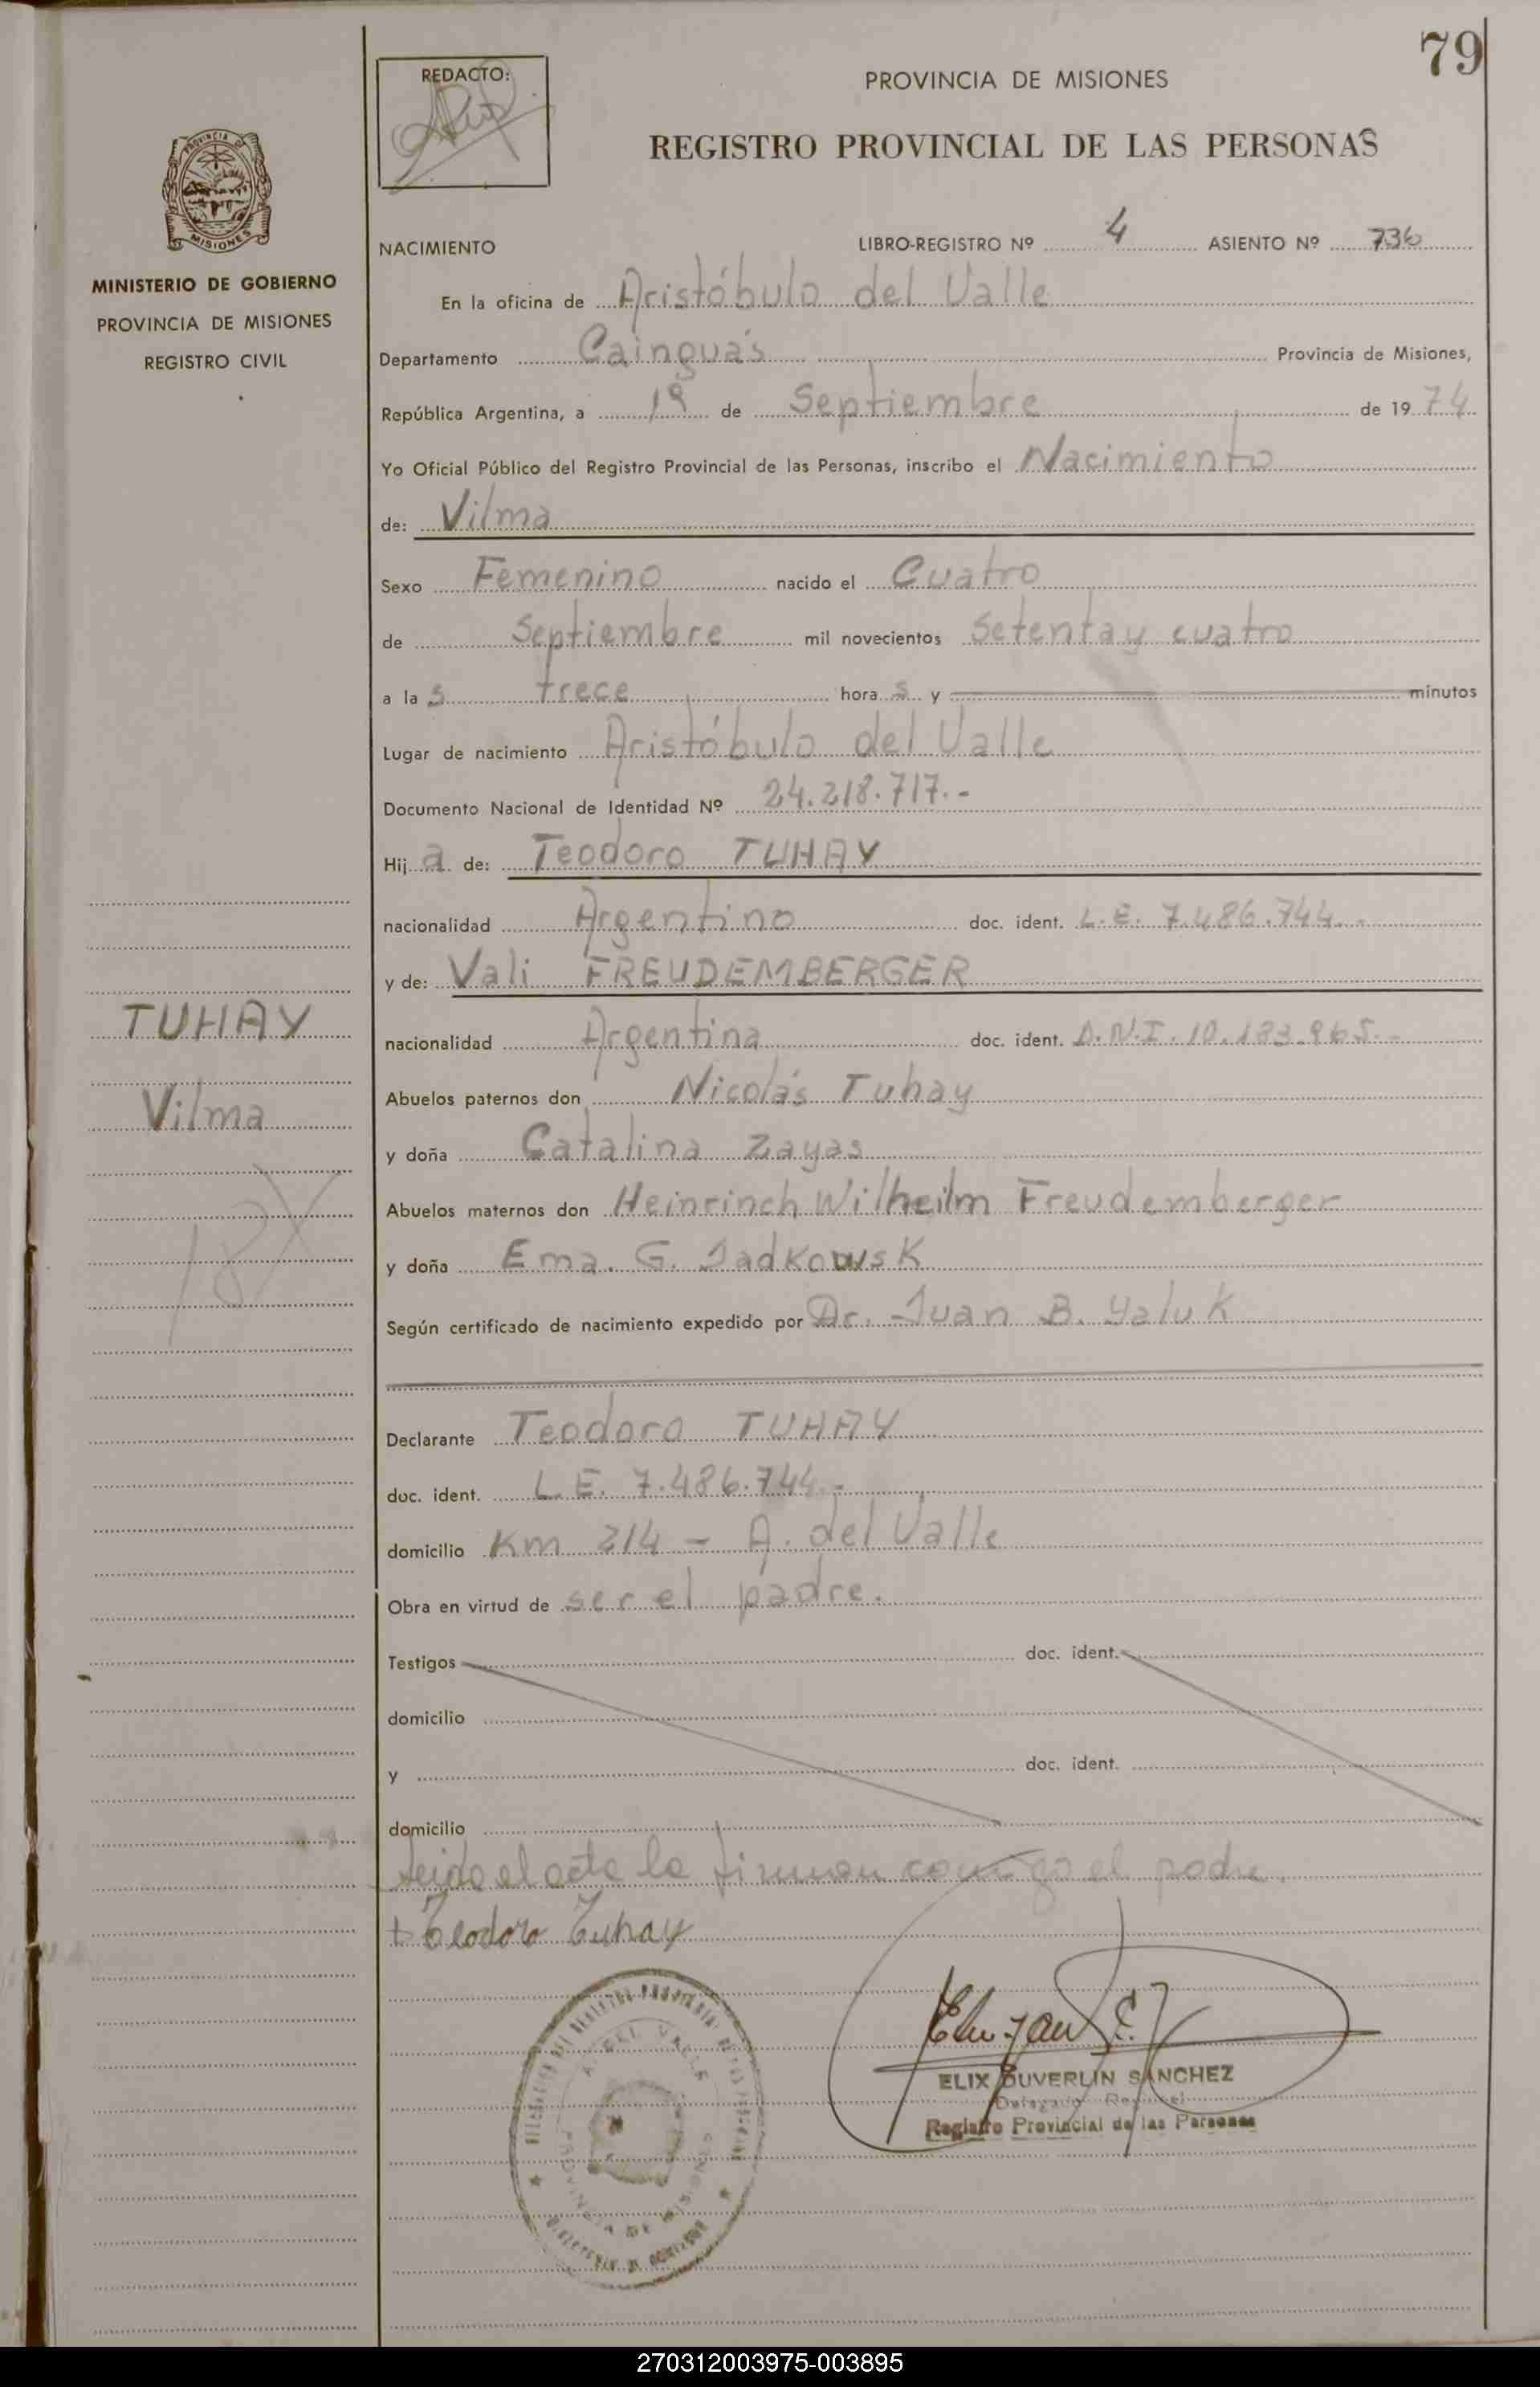 79
REDACTO:
PROVINCIA DE MISIONES
REGISTRO PROVINCIAL DE LAS PERSONAS
PROVINCIA DE
MISIONES
MINISTERIO DE GOBIERNO
PROVINCIA DE MISIONES
REGISTRO CIVIL
NACIMIENTO LIBRO-REGISTRO Nº 4 ASIENTO Nº 736
En la oficina de Aristóbulo del Valle
Departamento Cainguás Provincia de Misiones,
República Argentina, a 19 de Septiembre de 19 74
Yo Oficial Público del Registro Provincial de las Personas, inscribo el Nacimiento
de: Vilma
Sexo Femenino nacido el Cuatro
de Septiembre mil novecientos Setenta y cuatro
a la s trece hora s y minutos
Lugar de nacimiento Aristóbulo del Valle
Documento Nacional de Identidad Nº 24.218.717.-
Hij a de: Teodoro TUHAY
nacionalidad Argentino doc. ident. L.E. 7.486.744.-
y de: Vali FREUDEMBERGER
nacionalidad Argentina doc. ident. D.N.I. 10.183.965.-
Abuelos paternos don Nicolás Tuhay
y doña Catalina Zayas
Abuelos maternos don Heinrinch Wilheilm Freudemberger
y doña Ema. G. Jadkowsk
Según certificado de nacimiento expedido por Dr. Juan B. Yaluk
TUHAY
Vilma
Declarante Teodoro TUHAY
doc. ident. L.E. 7.486.744.-
domicilio Km 214 - A. del Valle
Obra en virtud de ser el padre.
Testigos doc. ident.
domicilio
y doc. ident.
domicilio
Leida el acta la firman conmigo el padre.
Teodoro Tuhay
A. DEL VALLE
PROVINCIA DE MISIONES
ELIX DUVERLIN SANCHEZ
Delegado Regional
Registro Provincial de las Personas
270312003975-003895